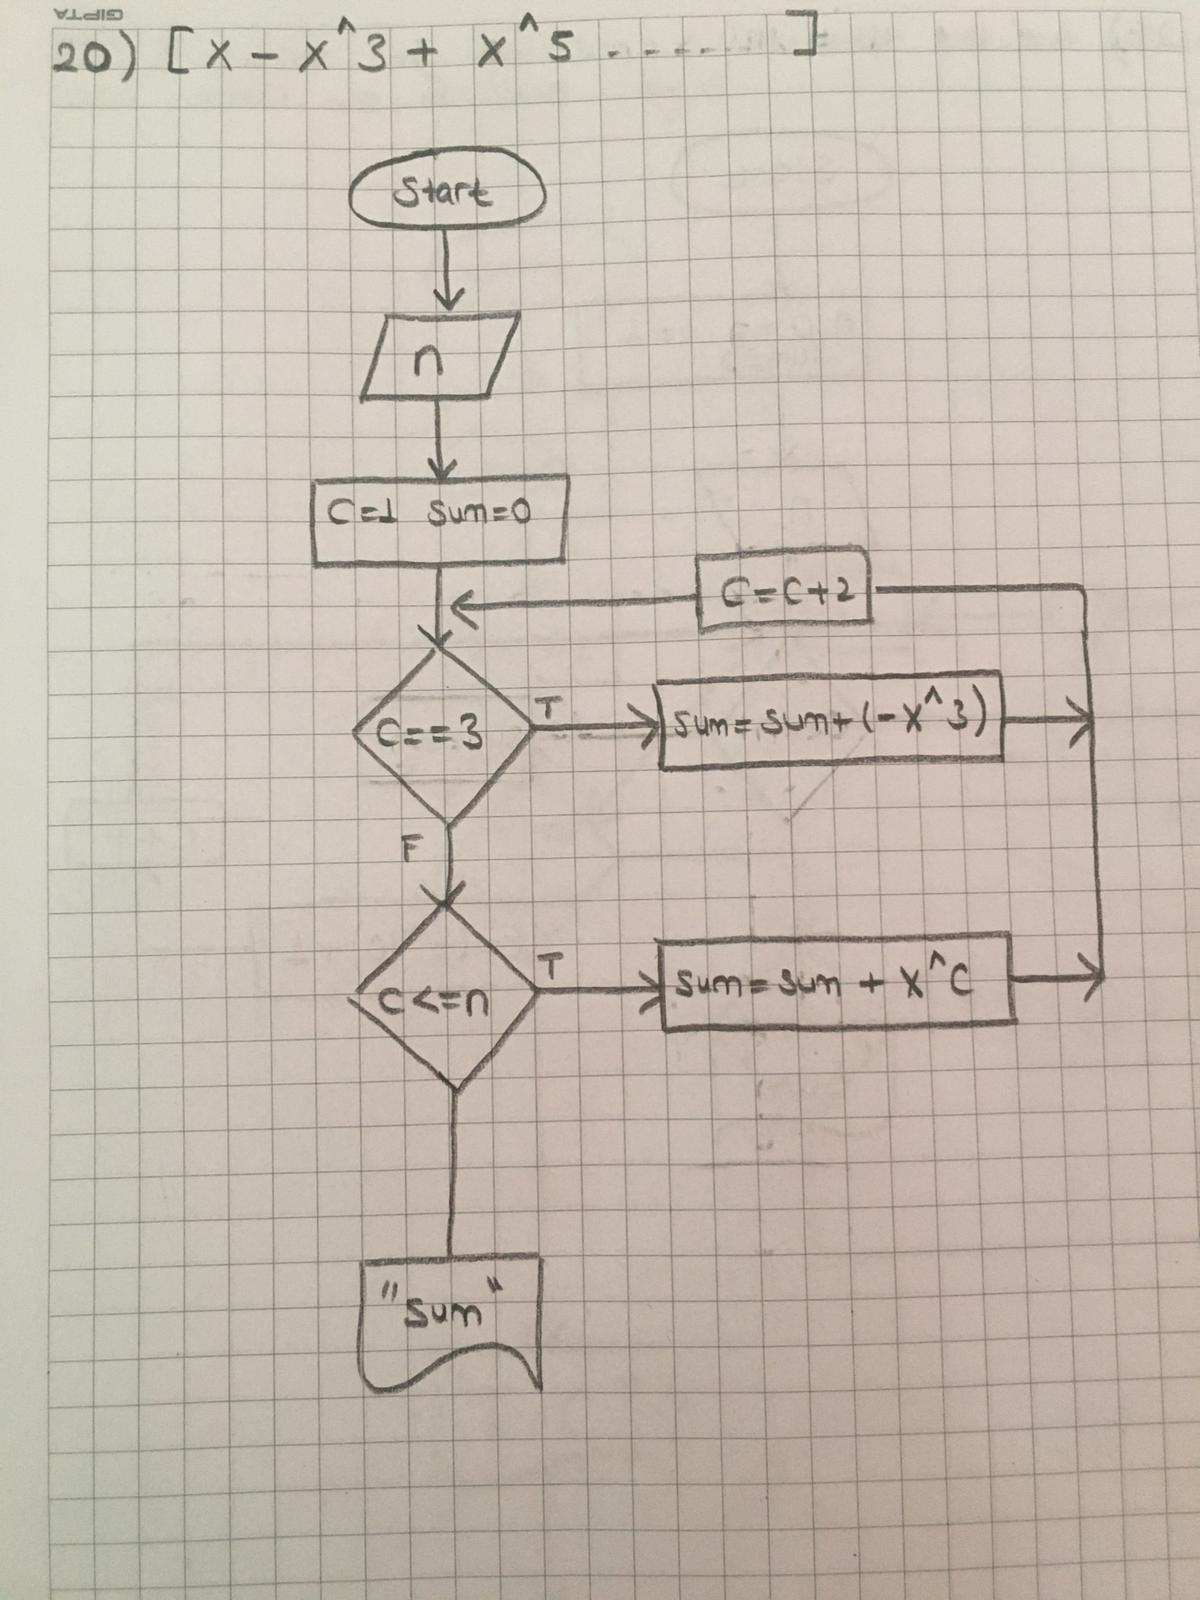 GIPTA
20) [x - x^3 + x^5 ......... ]
Start
n
C=1 sum=0
C=C+2
C==3
T
sum=sum+(-x^3)
F
C<=n
T
sum=sum + x^C
"sum"